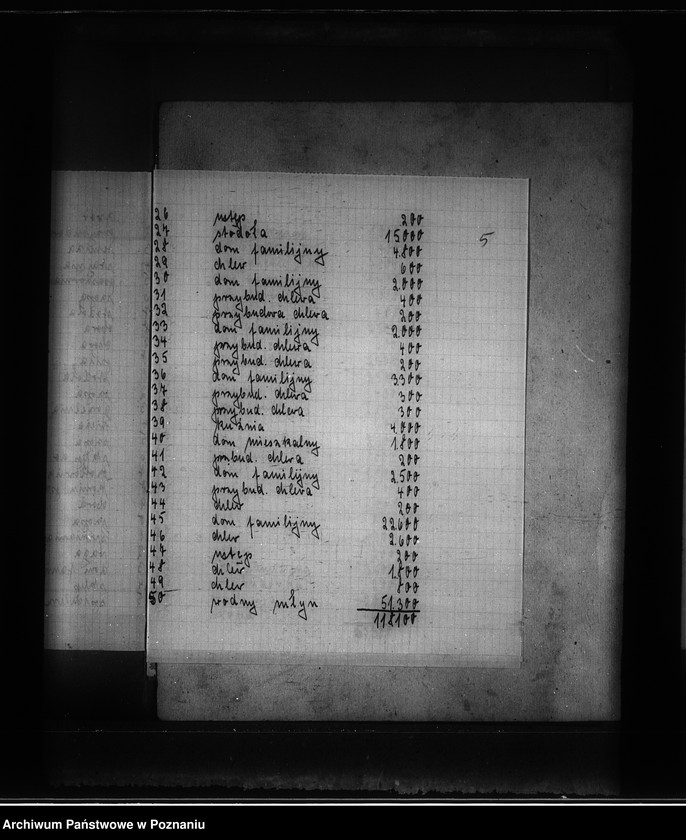 26 ustęp 200
27 stodoła 15000 5
28 dom familijny 4.800
29 chlew 600
30 dom familijny 2.000
31 przybud. chlewa 400
32 przybudowa chlewa 200
33 dom familijny 2.000
34 przybud. chlewa 400
35 przybud. chlewa 200
36 dom familijny 3300
37 przybud. chlewa 300
38 przybud. chlewa 300
39 kuźnia 4.000
40 dom mieszkalny 1.800
41 prybud. chlewa 200
42 dom familijny 2.500
43 przybud. chlewa 400
44 chlew 200
45 dom familijny 22600
46 chlew 2.600
47 ustęp 200
48 chlew 1.800
49 chlew 800
50 wodny młyn 51.300
118100
Archiwum Państwowe w Poznaniu